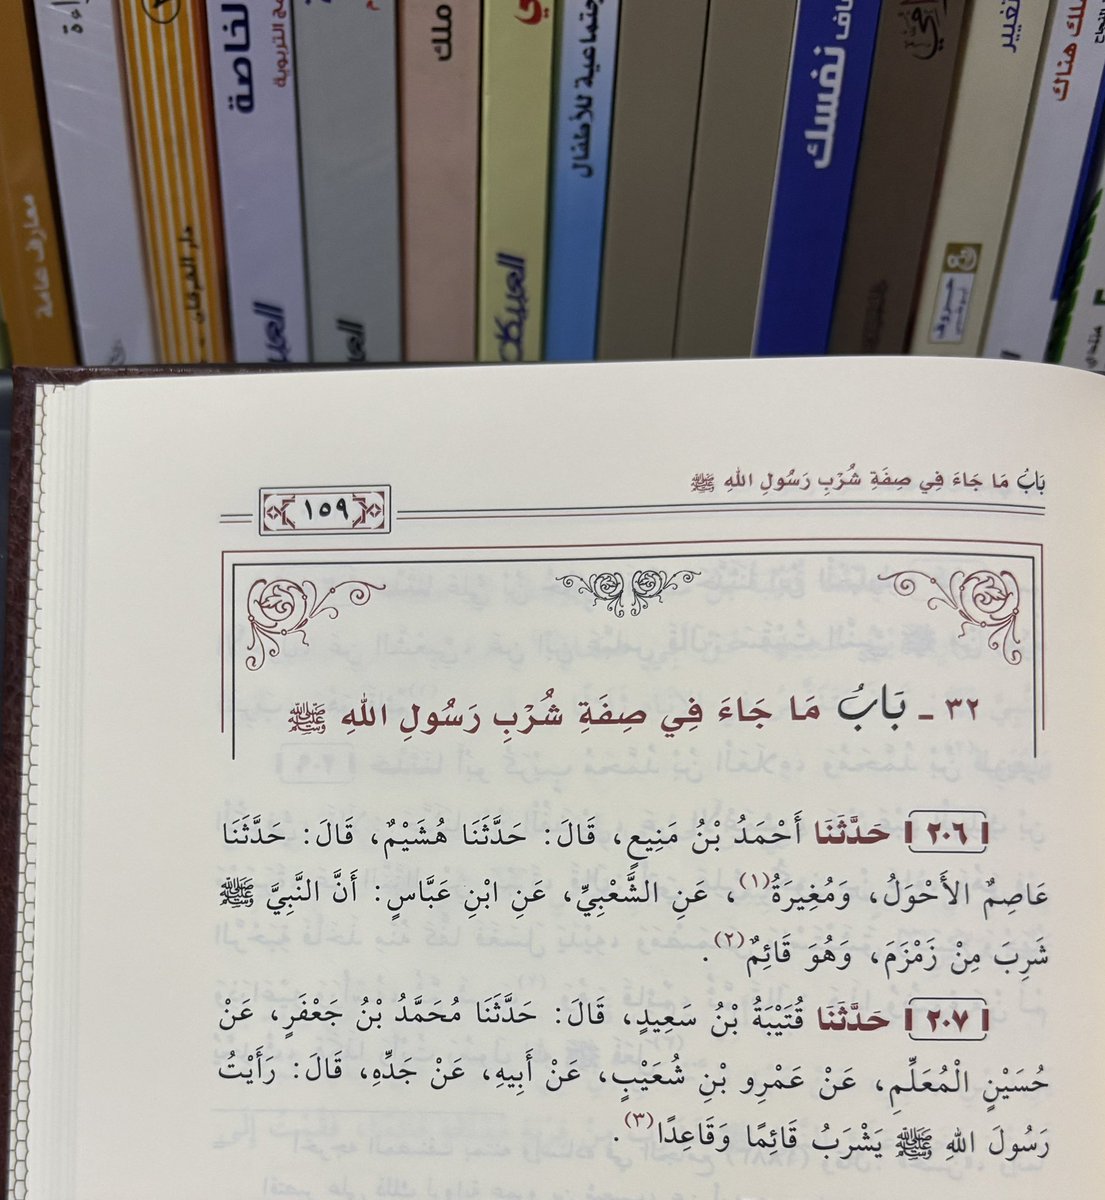 معارف عامة
دار الفرقان
لخاصة
التربوية
ملك
العبيكان
جتماعية للأطفال
نفسك
حروف
تغيير
ملك هناك
بَابُ مَا جَاءَ فِي صِفَةِ شُرْبِ رَسُولِ اللهِ ﷺ
١٥٩
٣٢ - بَابُ مَا جَاءَ فِي صِفَةِ شُرْبِ رَسُولِ اللهِ ﷺ
٢٠٦ حَدَّثَنَا أَحْمَدُ بْنُ مَنِيعٍ، قَالَ: حَدَّثَنَا هُشَيْمٌ، قَالَ: حَدَّثَنَا
عَاصِمٌ الأَحْوَلُ، وَمُغِيرَةُ(١)، عَنِ الشَّعْبِيِّ، عَنِ ابْنِ عَبَّاسٍ: أَنَّ النَّبِيَّ ﷺ
شَرِبَ مِنْ زَمْزَمَ، وَهُوَ قَائِمٌ(٢).
٢٠٧ حَدَّثَنَا قُتَيْبَةُ بْنُ سَعِيدٍ، قَالَ: حَدَّثَنَا مُحَمَّدُ بْنُ جَعْفَرٍ، عَنْ
حُسَيْنٍ الْمُعَلِّمِ، عَنْ عَمْرِو بْنِ شُعَيْبٍ، عَنْ أَبِيهِ، عَنْ جَدِّهِ، قَالَ: رَأَيْتُ
رَسُولَ اللهِ ﷺ يَشْرَبُ قَائِمًا وَقَاعِدًا(٣).